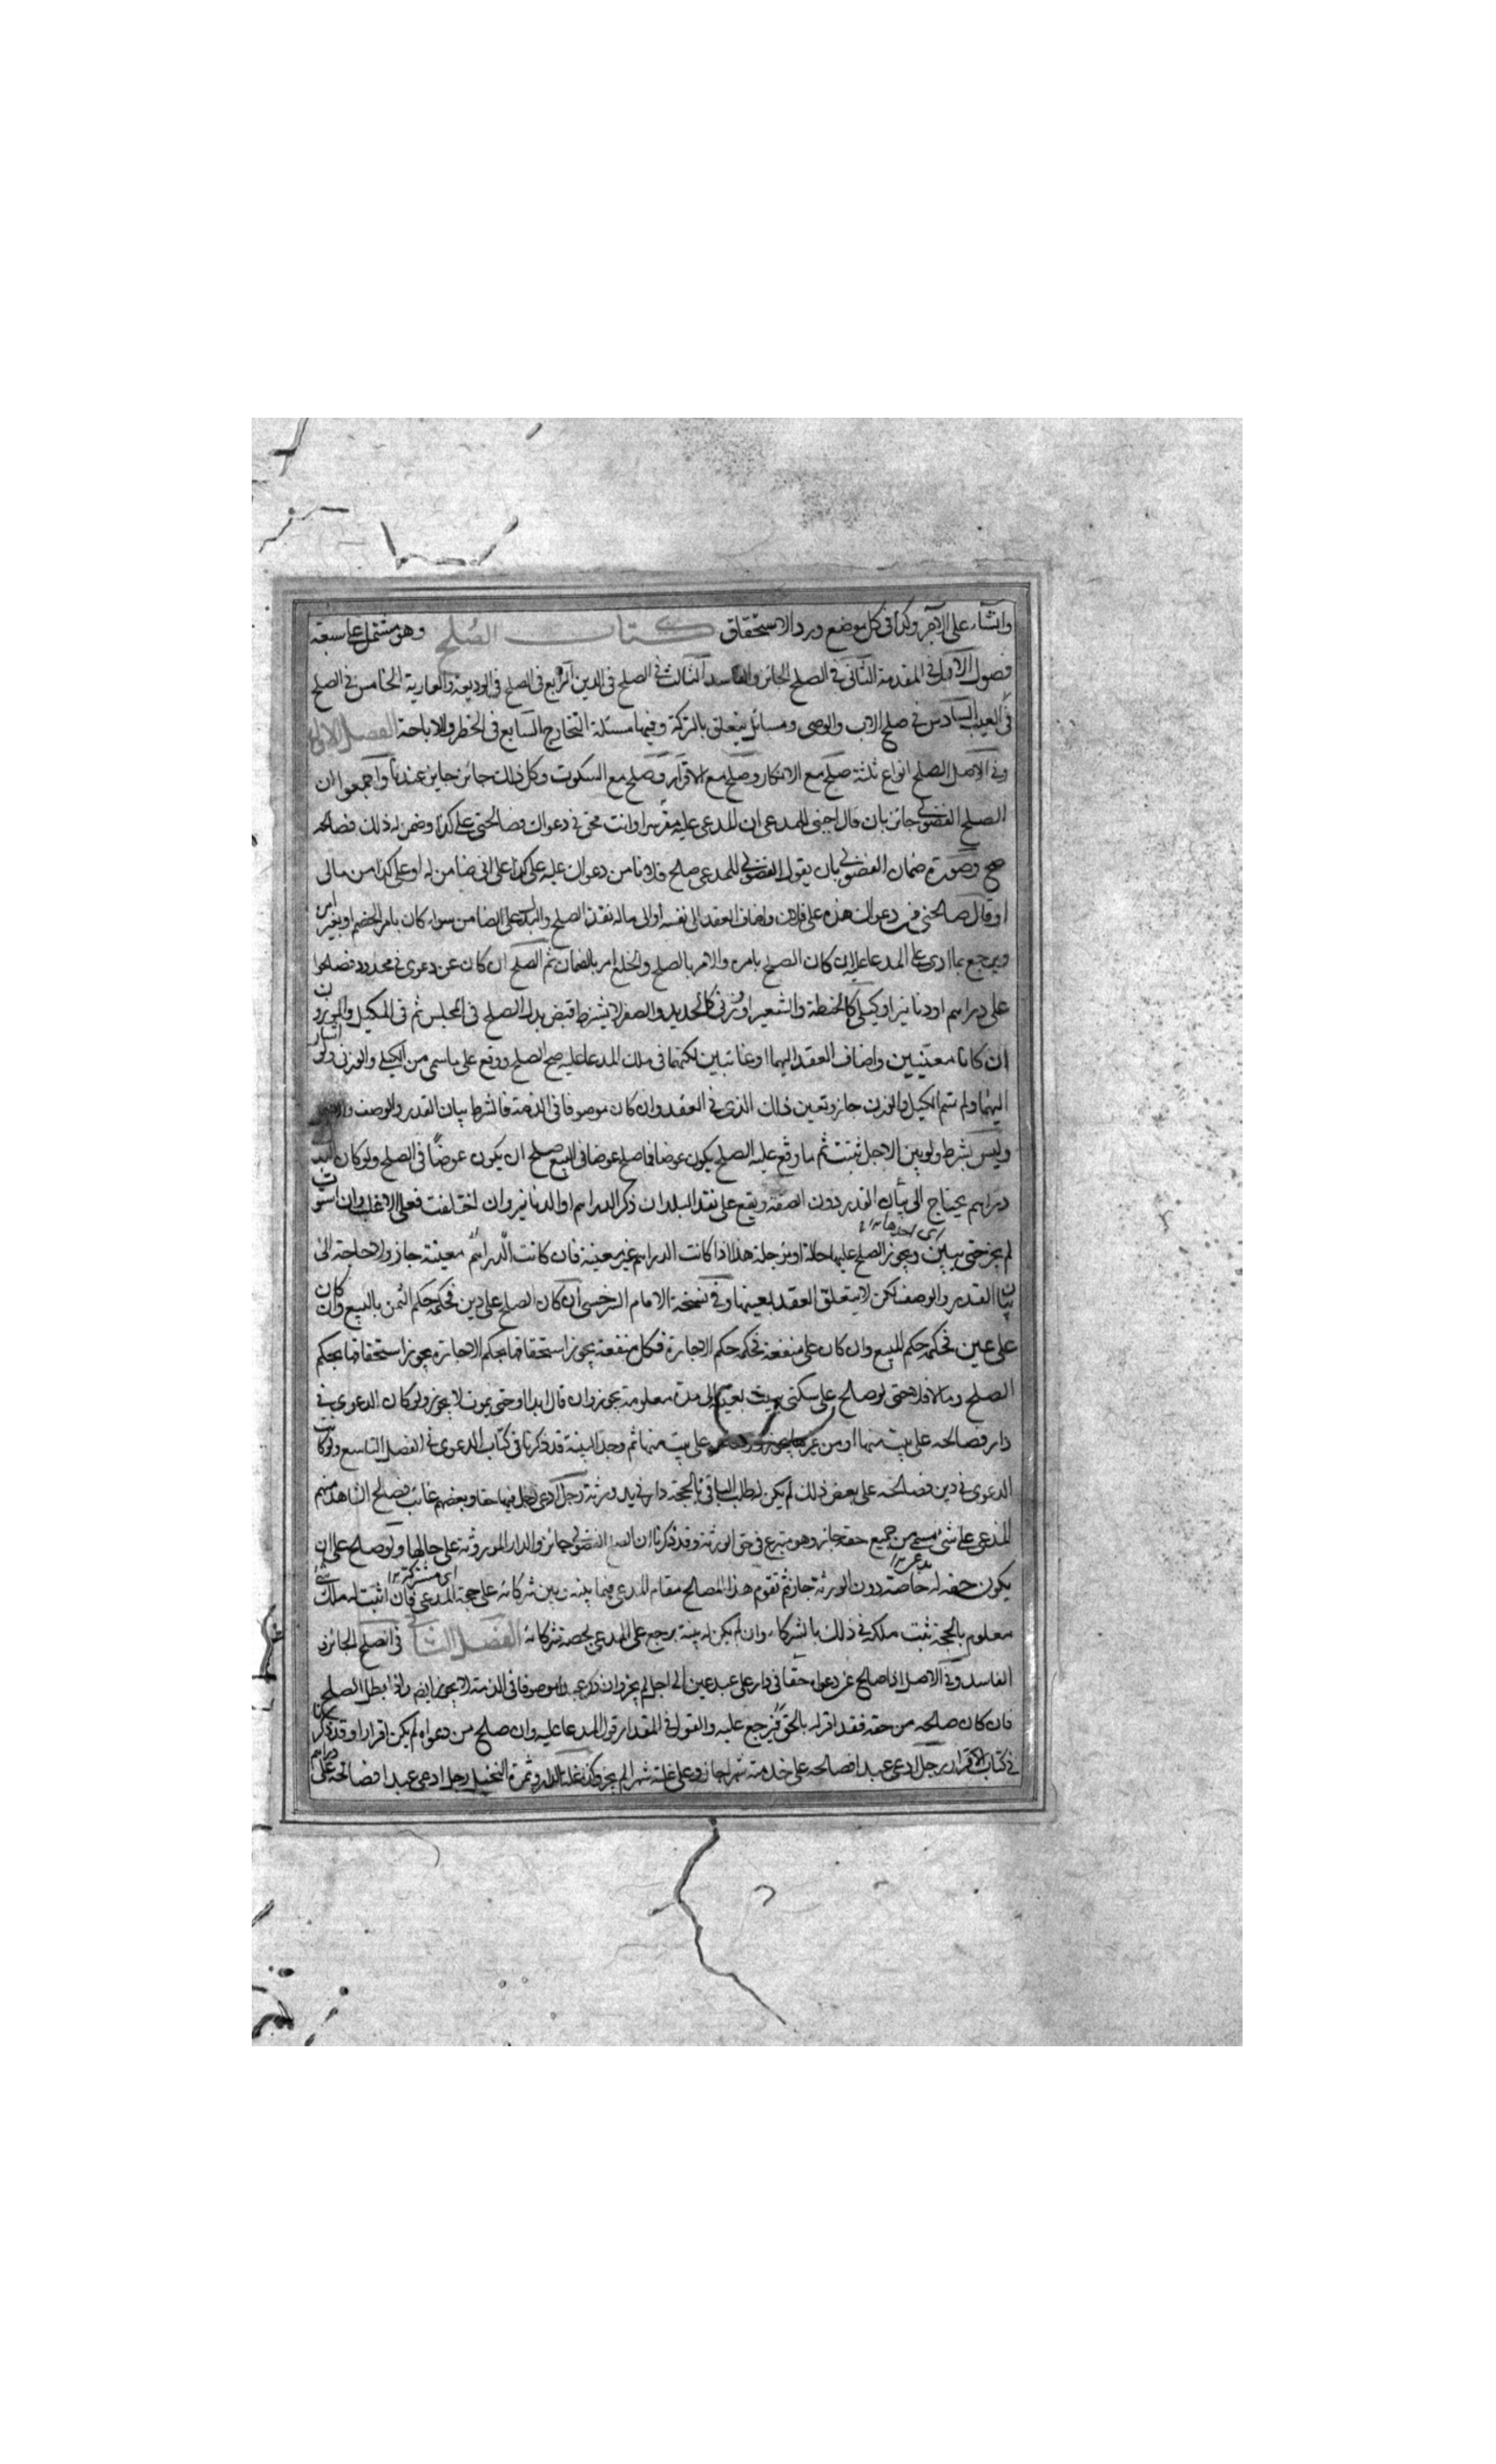 وان شاء على الآخر وكذا في كل موضع ورد الاستحقاق كتاب الصلح وهو مشتمل على سبعة
فصول الاول في المقدمة الثاني في الصلح الجائز والفاسد الثالث في الصلح في الدين الرابع في الصلح في الوديعة والعارية الخامس في الصلح
في العيب السادس في صلح الاب والوصي ومسائل يتعلق بالتركة وفيها مسئلة التخارج السابع في الحظر والاباحة الفصل الاول
وفي الاصل الصلح انواع ثلثة صلح مع الانكار وصلح مع الاقرار وصلح مع السكوت وكل ذلك جائز جايز عندنا واجمعوا ان
الصلح الفضولي جائز بان قال اجنبي للمدعي ان للمدعى عليه مقر سرا وانت محق في دعواك فصالحني على كذا وضمن له ذلك فصالحه
صح وصورة ضمان الفضولي بان يقول الفضولي للمدعي صلح فلانا من دعواك عليه على كذا على اني ضامن له او على كذا من مالي
او قال صالحني من دعواك هذه على فلان واضاف العقد الى نفسه او الى ماله نفذ الصلح والبدل على الضامن سواء كان بامر الخصم او بغير امره
ويرجع بما ادى على المدعا عليه ان كان الصلح بامره والامر بالصلح والخلع امر بالضمان ثم الصلح ان كان عن دعوى في محدود فصلحوا
على دراهم او دنانير او كيلي كالحنطة والشعير او وزني كالحديد والصفر لا يشترط قبض بدل الصلح في المجلس ثم في المكيل والموزون
ان كانا معينين واضاف العقد اليهما او غائبين لكنهما في ملك المدعا عليه صح الصلح ووقع على ما سمى من الكيلي والوزني ولو اشار
اليهما ولم يسم الكيل والوزن جاز وتعين ذلك الذي في العقد وان كان موصوفا في الذمة فالشرط بيان القدر والوصف
وليس بشرط ولو بين الاجل يثبت ثم ما وقع عليه الصلح يكون عوضا فما صلح عوضا في البيع صلح ان يكون عوضا في الصلح ولو كان البدل
دراهم يحتاج الى بيان القدر دون الصفة ويقع على نقد البلد ان ذكر الدراهم او الدنانير وان اختلفت فعلى الاغلب وان استوت
اي احدهما
لم يجز حتى يبين ويجوز الصلح عليها حالة او مؤجلة هذا اذا كانت الدراهم غير معينة فان كانت الدراهم معينة جاز ولا حاجة الى
بيان القدر والوصف لكن لا يتعلق العقد بعينها وفي نسخة الامام السرخسي ان كان الصلح على دين فحكمه حكم الثمن بالبيع وان كان
على عين فحكمه حكم المبيع وان كان على منفعة فحكمه حكم الاجارة فكل منفعة يجوز استحقاقها بحكم الاجارة يجوز استحقاقها بحكم
الصلح وما لا فلا حتى لو صلح على سكنى بيت بعينه الى مدة معلومة يجوز وان قال ابدا او حتى يموت لا يجوز ولو كان الدعوى في
دار فصالحه على بيت منها او من غيرها يجوز على بيت منها ثم وجد البينة قد ذكرنا في كتاب الدعوى في الفصل التاسع ولو كانت
الدعوى في دين فصالحه على بعض ذلك لم يكن له طلب الباقي بالحجة دار في يد ورثة رجل ادعى رجل فيها حقا وبعضهم غائب فصالح الشاهد منهم
المدعي على شيء مسمى من جميع حقه جاز وهو متبرع في حق الورثة وقد ذكرنا ان الصلح الفضولي جائز والدار الموروثة على حالها ولو صلح على ان
اي مشتركة
يكون حقه له خاصة دون الورثة جاز ثم تقوم هذا المصالح مقام المدعي فيما بينه وبين شركائه على حجة المدعي فان اثبت له ملك شيء
معلوم بالحجة ثبت ملكه في ذلك بالشركاء وان لم يكن له بينة يرجع على المدعي بحصة شركائه الفصل الثاني في الصلح الجائز و
الفاسد وفي الاصل اذا صالح عن دعواه حقا في دار على عبد عين الى اجل لم يجز وان ذكر عبدا موصوفا في الذمة لا يجوز ايضا واذا بطل الصلح
فان كان صالحه من حقه فقد اقر له بالحق فيرجع عليه والقول في المقدار قول المدعا عليه وان صلح من دعواه لم يكن اقرارا وقد ذكرنا
في كتاب الاقرار رجل ادعى عبدا فصالحه على خدمة شهرا جاز وعلى غلة شهر لم يجز وكذا غلة الدار وثمرة النخيل رجل ادعى عبدا فصالحه على دراهم